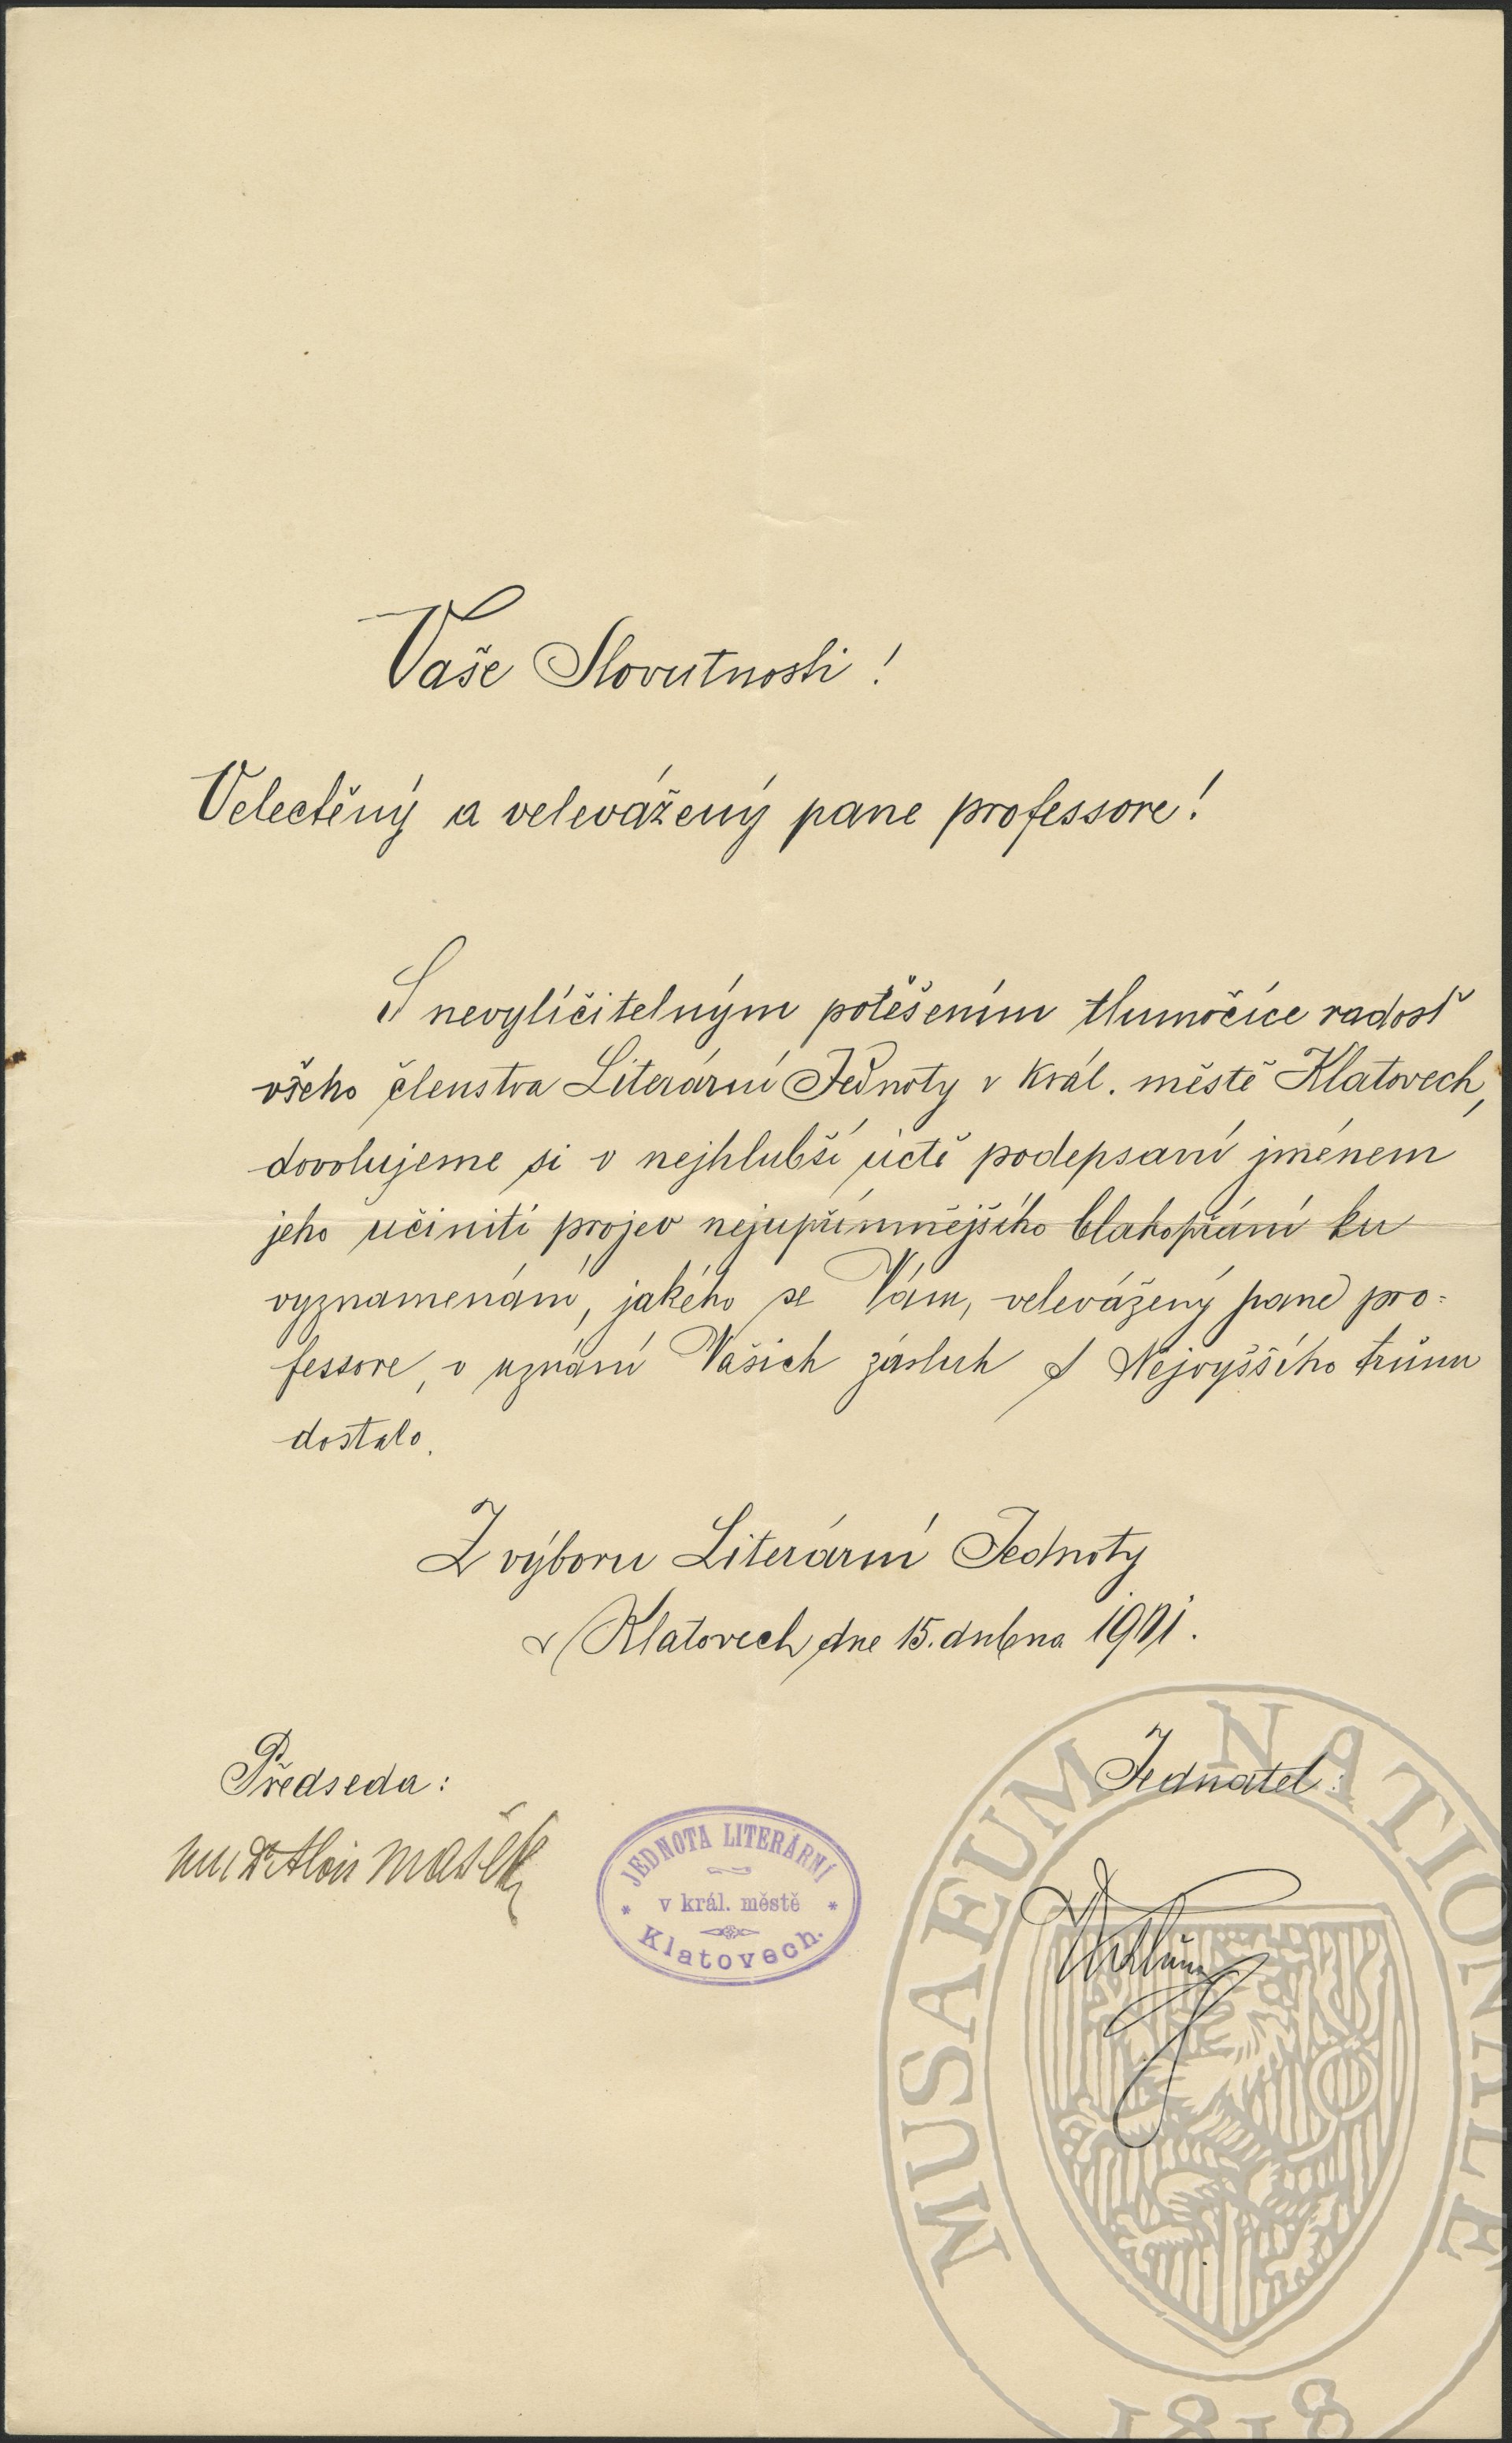 Vaše Slovutnosti!
Velectěný a velevážený pane professore!
S nevylíčitelným potěšením tlumočíce radosť
všeho členstva Literární Jednoty v král. městě Klatovech,
dovolujeme si v nejhlubší úctě podepsaní jménem
jeho učiniti projev nejupřímnějšího blahopřání ku
vyznamenání, jakého se Vám, velevážený pane pro=
fessore, v uznání Vašich zásluh s Nejvyššího trůnu
dostalo.
Z výboru Literární Jednoty
v Klatovech, dne 15. dubna 1901.
Předseda:
Jednatel:
MUDr Alois Mašek
JEDNOTA LITERÁRNÍ
v král. městě
Klatovech.
MUSAEUM NATIONALE
1818